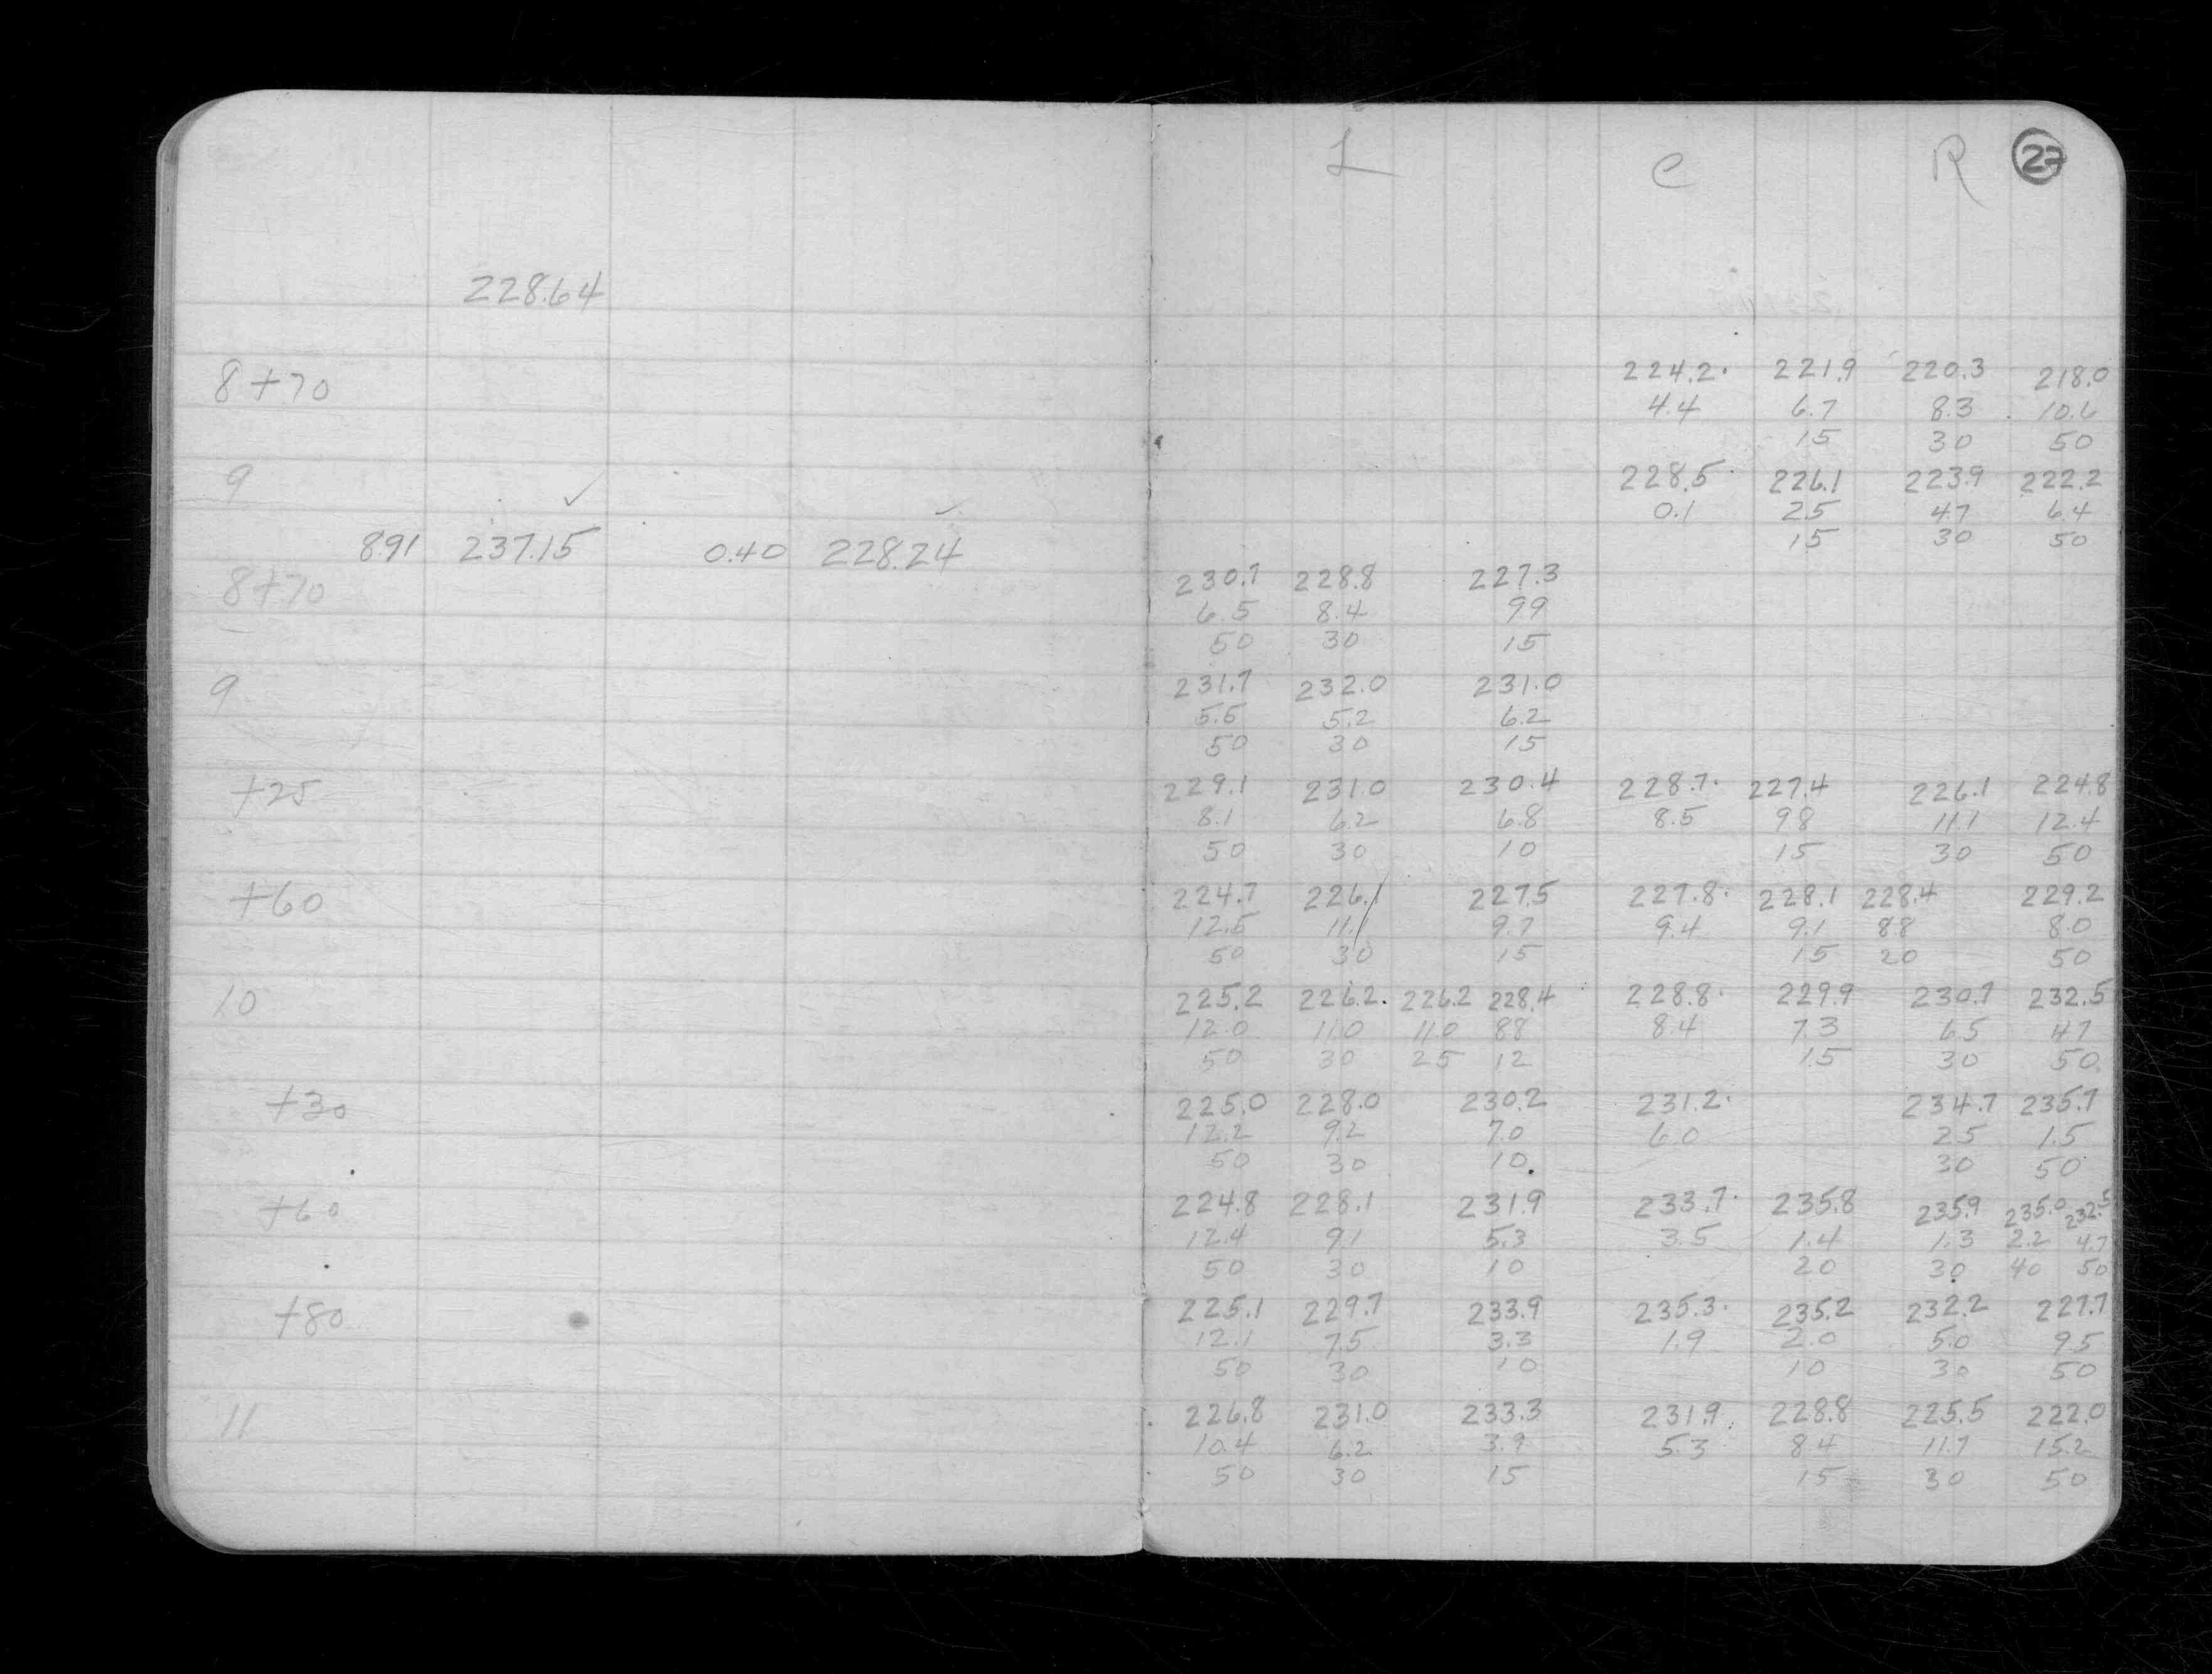 L C R 27
228.64
8+70 224.2 221.9 220.3 218.0
4.4 6.7 8.3 10.6
15 30 50
9 228.5 226.1 223.9 222.2
0.1 2.5 4.7 6.4
15 30 50
891 237.15 0.40 228.24
8+70 230.7 228.8 227.3
6.5 8.4 99
50 30 15
9 231.7 232.0 231.0
5.5 5.2 6.2
50 30 15
+25 229.1 231.0 230.4 228.7 227.4 226.1 224.8
8.1 6.2 6.8 8.5 98 11.1 12.4
50 30 10 15 30 50
+60 224.7 226.1 227.5 227.8 228.1 228.4 229.2
12.5 11.1 9.7 9.4 9.1 88 8.0
50 30 15 15 20 50
10 225.2 226.2 226.2 228.4 228.8 229.9 230.7 232.5
12.0 11.0 11.0 88 8.4 7.3 6.5 47
50 30 25 12 15 30 50
+30 225.0 228.0 230.2 231.2 234.7 235.7
12.2 9.2 7.0 6.0 25 1.5
50 30 10 30 50
+60 224.8 228.1 231.9 233.7 235.8 235.9 235.0 232.5
12.4 91 5.3 3.5 1.4 1.3 2.2 4.7
50 30 10 20 30 40 50
+80 225.1 229.7 233.9 235.3 235.2 232.2 227.7
12.1 7.5 3.3 1.9 2.0 5.0 95
50 30 10 10 30 50
11 226.8 231.0 233.3 231.9 228.8 225.5 222.0
10.4 6.2 3.9 5.3 84 11.7 15.2
50 30 15 15 30 50